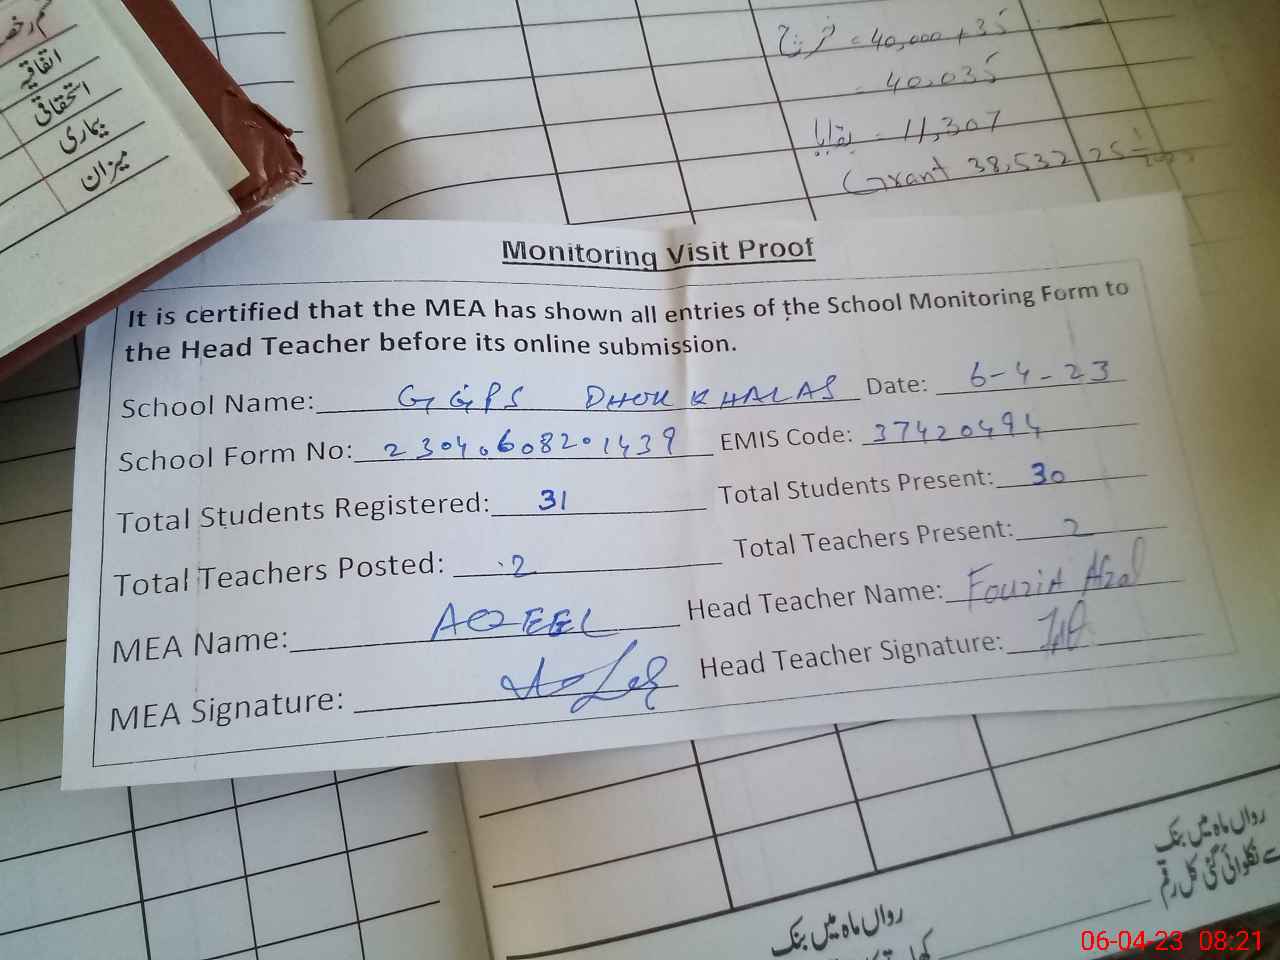 رخصت
اتفاقیہ
استحقاقی
بیماری
میزان
خرچ = 40,000+35
= 40,035
بقایا = 11,307
Grant 38,532
Monitoring Visit Proof
It is certified that the MEA has shown all entries of the School Monitoring Form to
the Head Teacher before its online submission.
School Name: GGPS DHOK KHALAS Date: 6-4-23
School Form No: 23040608201439 EMIS Code: 37420494
Total Students Registered: 31 Total Students Present: 30
Total Teachers Posted: 2 Total Teachers Present: 2
MEA Name: AQEEL Head Teacher Name: Fouzia Afzal
MEA Signature: Head Teacher Signature:
رواں ماہ میں بنک
سے نکلوائی گئی کل رقم
رواں ماہ میں بنک
06-04-23 08:21